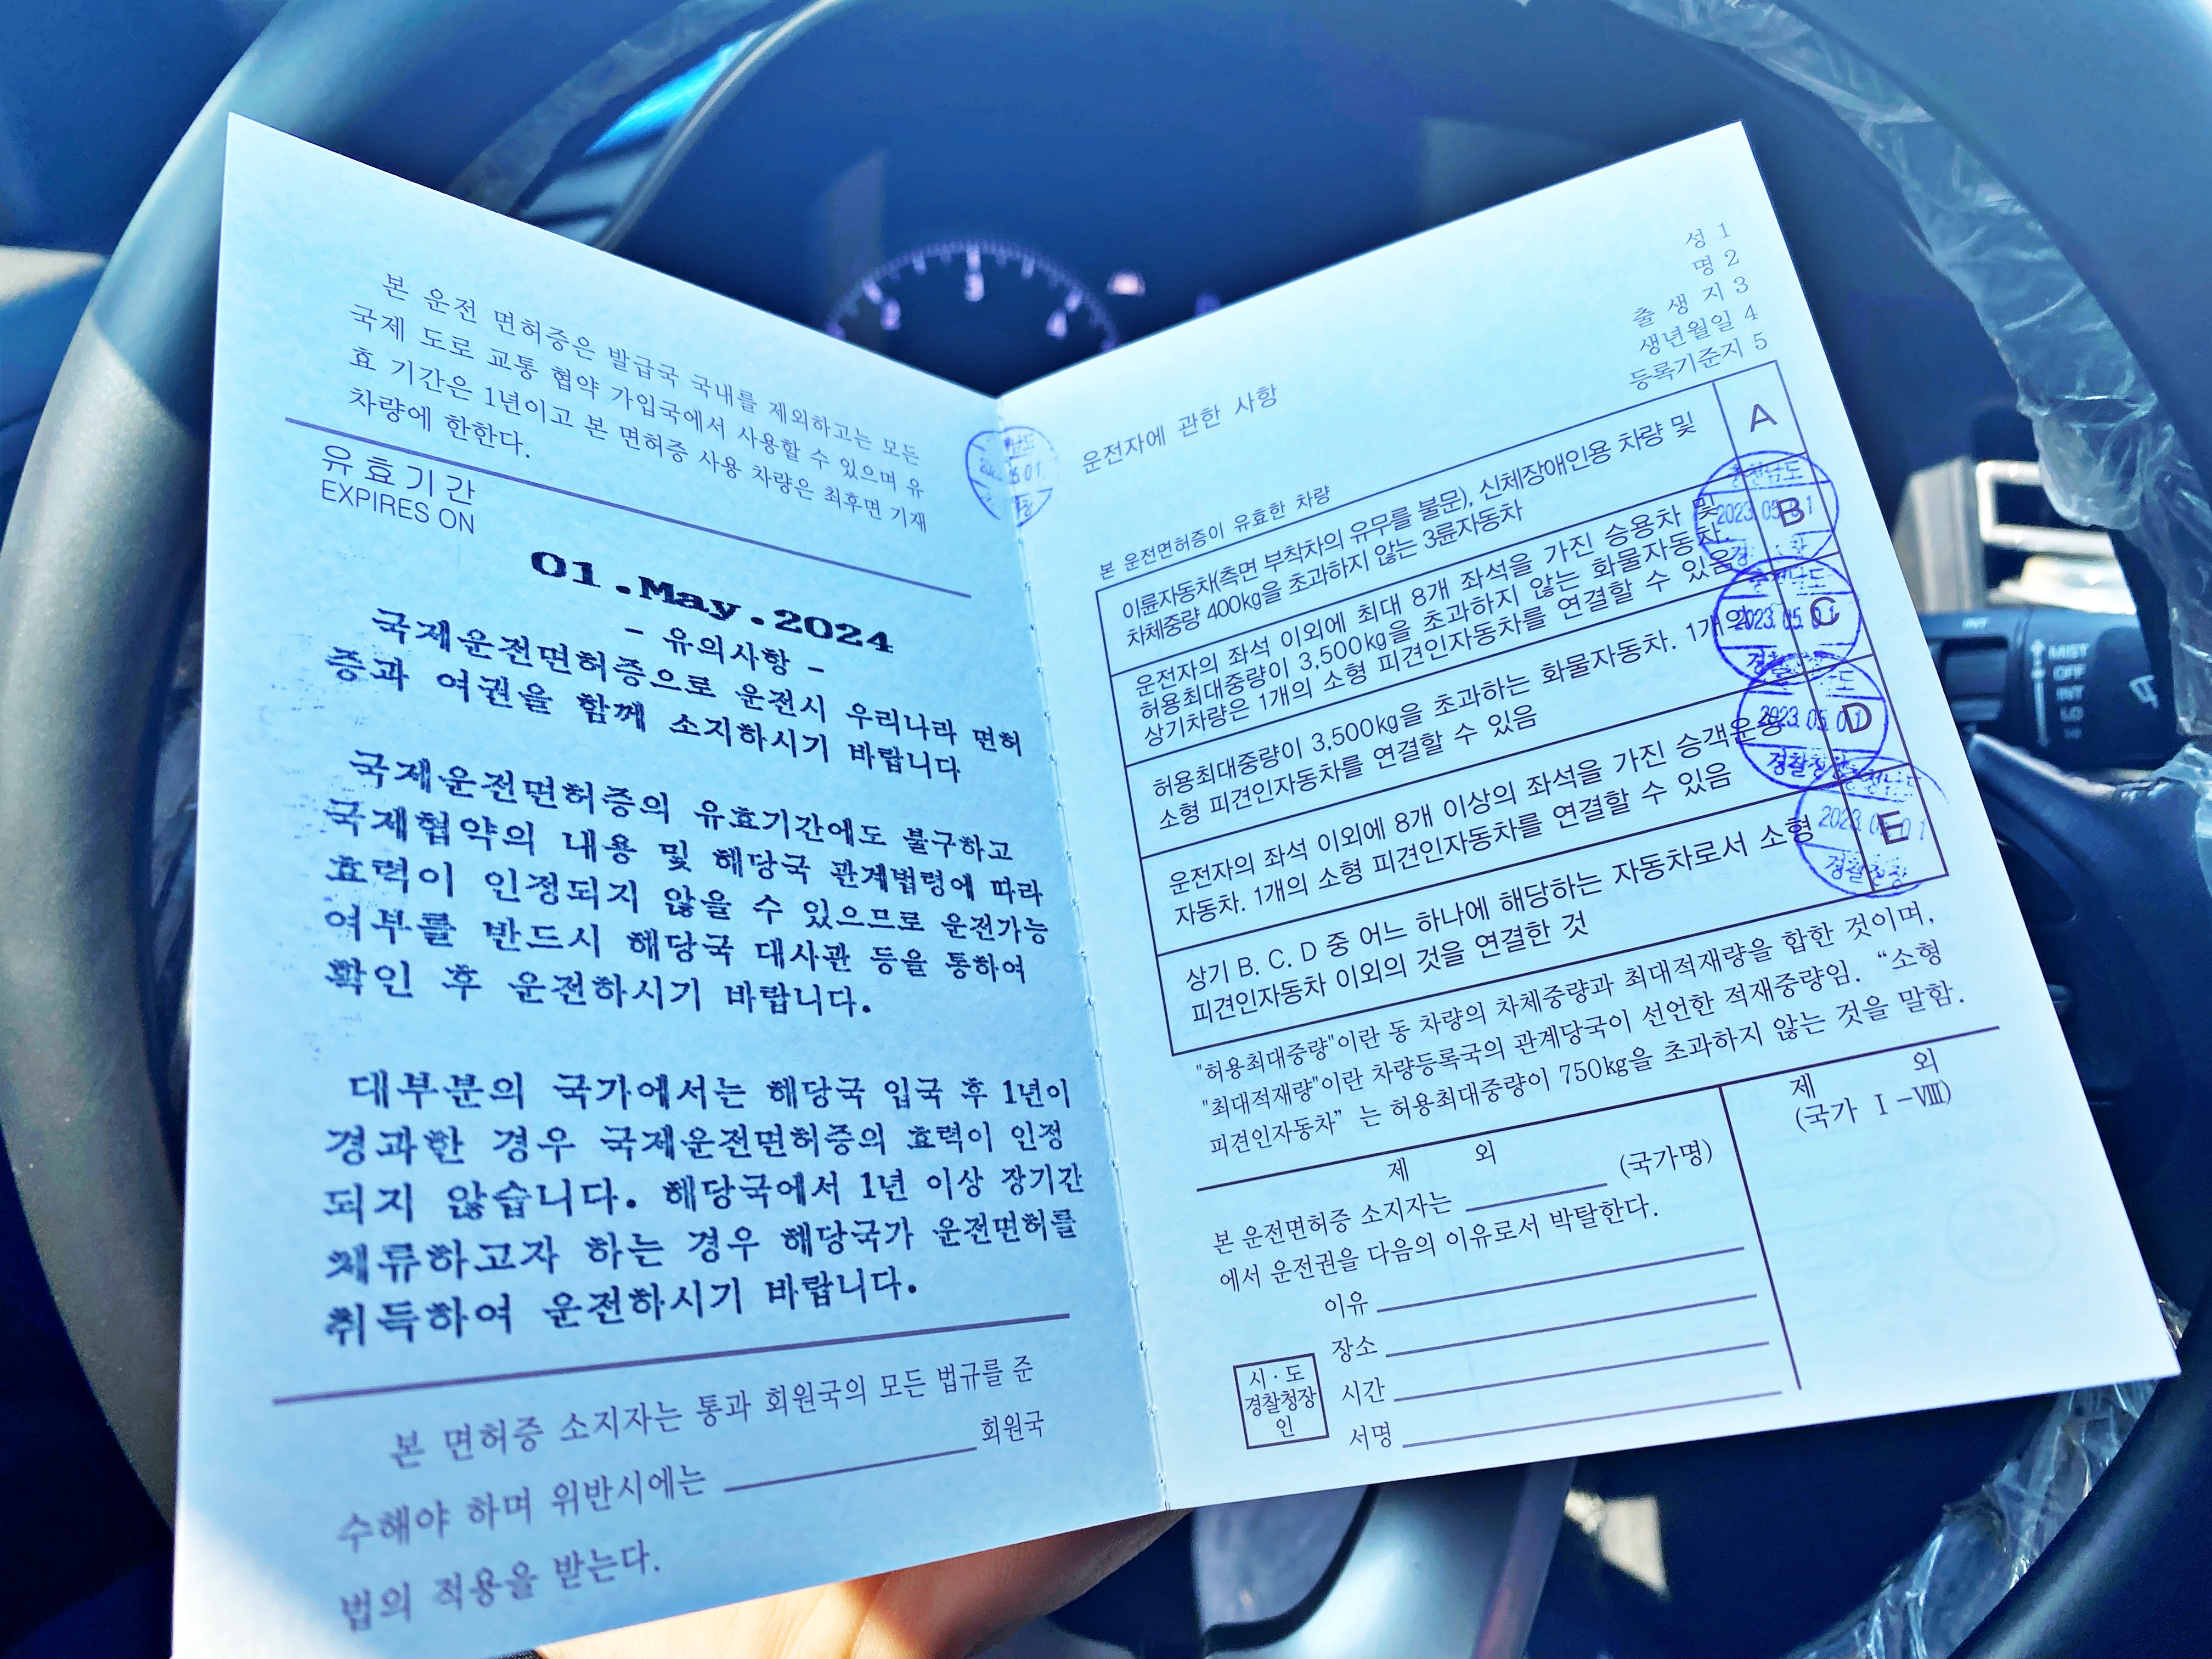 본 운전 면허증은 발급국 국내를 제외하고는 모든
국제 도로 교통 협약 가입국에서 사용할 수 있으며 유
효 기간은 1년이고 본 면허증 사용 차량은 최후면 기재
차량에 한한다.
유효기간
EXPIRES ON
01.May.2024
- 유의사항 -
국제운전면허증으로 운전시 우리나라 면허
증과 여권을 함께 소지하시기 바랍니다
국제운전면허증의 유효기간에도 불구하고
국제협약의 내용 및 해당국 관계법령에 따라
효력이 인정되지 않을 수 있으므로 운전가능
여부를 반드시 해당국 대사관 등을 통하여
확인 후 운전하시기 바랍니다.
대부분의 국가에서는 해당국 입국 후 1년이
경과한 경우 국제운전면허증의 효력이 인정
되지 않습니다. 해당국에서 1년 이상 장기간
체류하고자 하는 경우 해당국가 운전면허를
취득하여 운전하시기 바랍니다.
본 면허증 소지자는 통과 회원국의 모든 법규를 준
수해야 하며 위반시에는 회원국
법의 적용을 받는다.
성 1
명 2
출 생 지 3
생년월일 4
등록기준지 5
운전자에 관한 사항
본 운전면허증이 유효한 차량
이륜자동차(측면 부착차의 유무를 불문), 신체장애인용 차량 및
차체중량 400kg을 초과하지 않는 3륜자동차
A
운전자의 좌석 이외에 최대 8개 좌석을 가진 승용차 및
허용최대중량이 3,500kg을 초과하지 않는 화물자동차.
상기차량은 1개의 소형 피견인자동차를 연결할 수 있음
B
충청남도
2023. 05. 01
허용최대중량이 3,500kg을 초과하는 화물자동차. 1개의
소형 피견인자동차를 연결할 수 있음
C
2023. 05. 01
경찰
운전자의 좌석 이외에 8개 이상의 좌석을 가진 승객운송
자동차. 1개의 소형 피견인자동차를 연결할 수 있음
D
2023. 05. 01
경찰청
상기 B. C. D 중 어느 하나에 해당하는 자동차로서 소형
피견인자동차 이외의 것을 연결한 것
E
경찰청장
"허용최대중량"이란 동 차량의 차체중량과 최대적재량을 합한 것이며,
"최대적재량"이란 차량등록국의 관계당국이 선언한 적재중량임. “소형
피견인자동차” 는 허용최대중량이 750kg을 초과하지 않는 것을 말함.
제 외
(국가명)
본 운전면허증 소지자는
에서 운전권을 다음의 이유로서 박탈한다.
이유
장소
시간
서명
시·도
경찰청장
인
제 외
(국가 Ⅰ-Ⅷ)
2
3
4
INT
MIST
OFF
INT
LO
HI